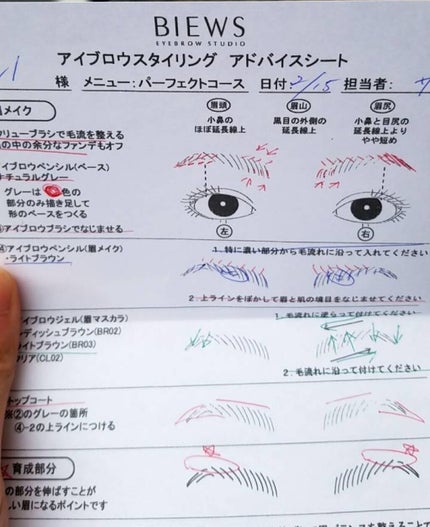 BIEWS
EYEBROW STUDIO
アイブロウスタイリング アドバイスシート
様 メニュー:パーフェクトコース 日付 2/15 担当者:
メイク
眉頭 眉山 眉尻
小鼻の 黒目の外側の 小鼻と目尻の
ほぼ延長線上 延長線上 延長線上より
やや短め
リューブラシで毛流を整える
の中の余分なファンデもオフ
イブロウペンシル(ベース)
チュラルグレー
グレーは 色の
部分のみ描き足して
形のベースをつくる
アイブロウブラシでなじませる
左 右
④アイブロウペンシル(眉メイク)
・ライトブラウン
1.特に濃い部分から毛流れに沿って入れてください
2.上ラインをぼかして眉と肌の境目をなじませてください
イブロウジェル(眉マスカラ)
ディッシュブラウン(BR02)
イトブラウン(BR03)
リア(CL02)
1.毛流れに逆らって付けてください
2.毛流れに沿って付けてください
トップコート
※②のグレーの箇所
④-2の上ラインにつける
育成部分
の部分を伸ばすことが
い眉になるポイントです